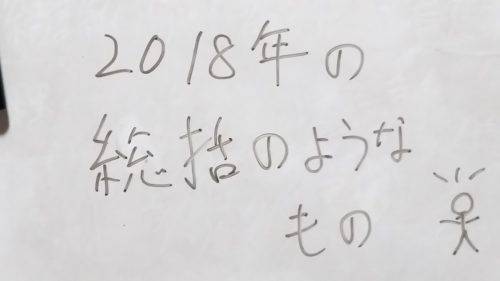 2018年の
総括のような
もの